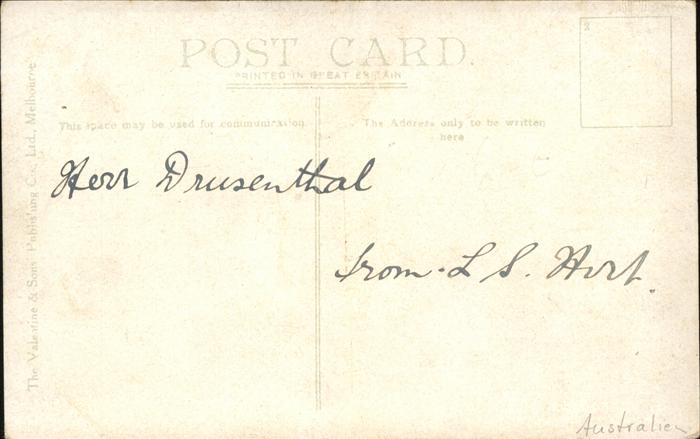 POST CARD.
PRINTED IN GREAT BRITAIN
This space may be used for communication.
The Address only to be written
here
Herr Drusenthal
from L S. Hort.
The Valentine & Sons Publishing Co., Ltd., Melbourne
Australien